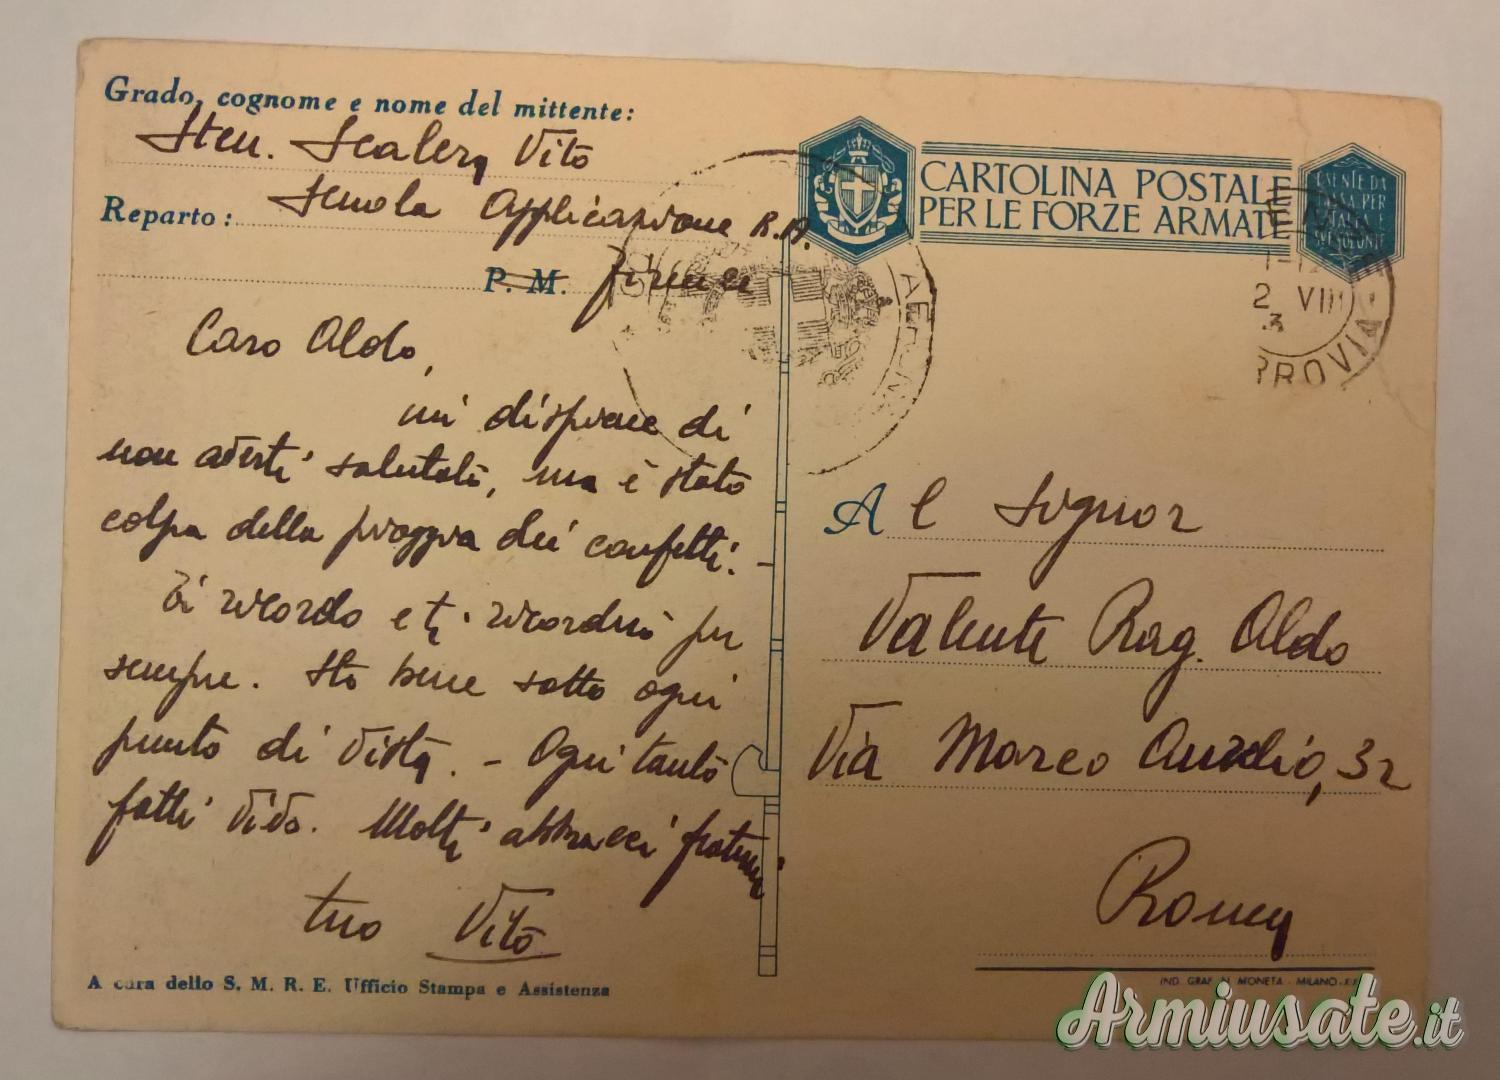 Grado, cognome e nome del mittente:
Sten. Scalera Vito
Reparto: Scuola Applicazione R.A.
P. M. Firenze
Caro Aldo,
mi dispiace di
non averti salutato, ma è stato
colpa della pioggia dei confetti. -
Ti ricordo e ti ricorderò per
sempre. Sto bene sotto ogni
punto di vista. - Ogni tanto
fatti vivo. Molti abbracci fraterni
tuo Vito
A cura dello S. M. R. E. Ufficio Stampa e Assistenza
CARTOLINA POSTALE
PER LE FORZE ARMATE
2 VIII
ROVIA
Al Signor
Valente Rag. Aldo
Via Marco Aurelio, 32
Roma
IND. GRAF. N. MONETA - MILANO
Armiusate.it